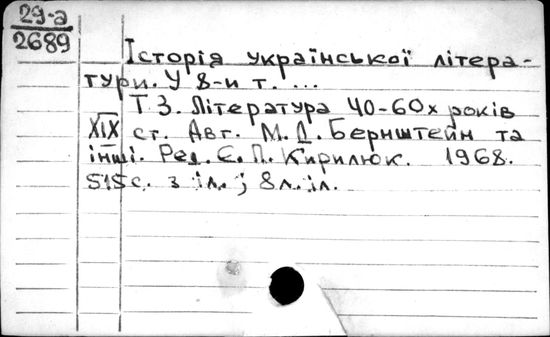 29-а
2689
Історія української літера-
тури. У 8-и т. ...
Т 3. Література 40-60х років
XIX ст. Авт. М. Д. Бернштейн та
інші. Ред. Є. П. Кирилюк. 1968.
515 с. з іл.; 8 л. іл.